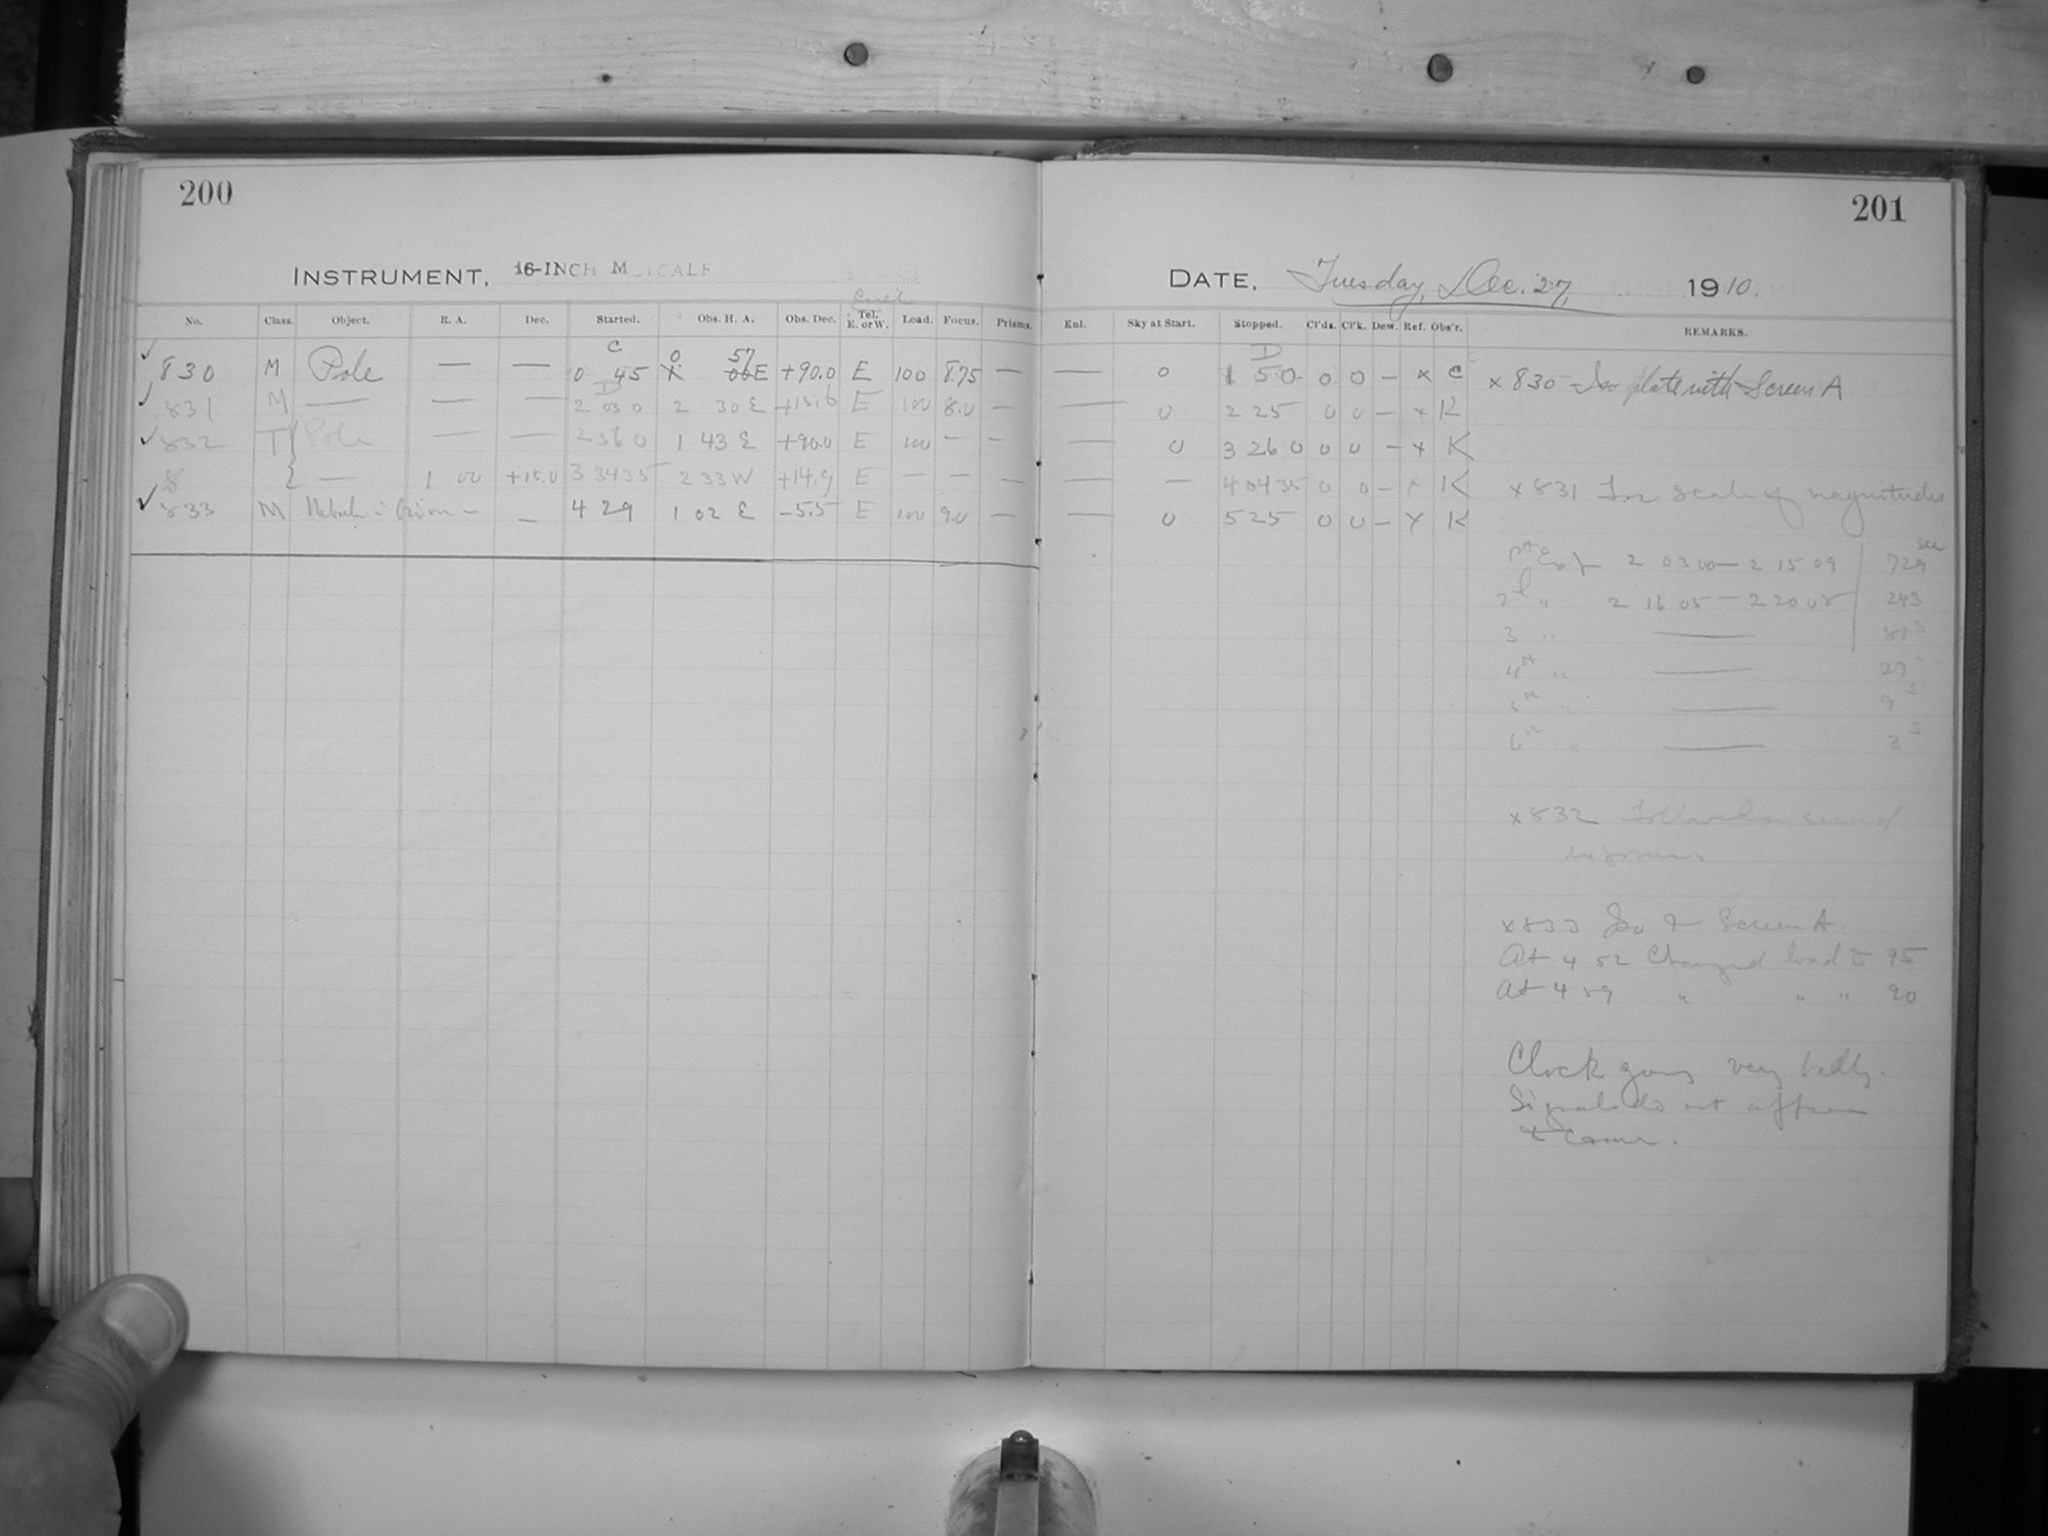 200
201
INSTRUMENT, 16-INCH METCALF
DATE, Tuesday, Dec. 27, 1910.
No. Class. Object. R. A. Dec. Started. Obs. H. A. Obs. Dec. Tel. E. or W. Load. Focus. Prisms. Enl. Sky at Start. Stopped. Cl'ds. Cl'k. Dew. Ref. Obs'r. REMARKS.
C 0 57 D
830 M Pole — — 0 45 X 06 E +90.0 E 100 8.75 — — 0 1 50 0 0 — x C x 830 Iso plate with Screen A
D
831 M — — — 2 03 0 2 30 E +15.6 E 100 8.0 — — 0 2 25 0 0 — x K
832 T Pole — — 2 36 0 1 43 E +90.0 E 100 — — — 0 3 26 0 0 0 — x K
8 — 1 00 +15.0 3 34 35 2 33 W +14.9 E — — — — — 4 04 35 0 0 — x K x 831 For scale of magnitudes
833 M Nebula in Orion — — 4 29 1 02 E -5.5 E 100 9.0 — — 0 5 25 0 0 — x K
sec
1st Exp 2 03 00 — 2 15 09 729
2d " 2 16 05 — 2 20 08 243
3 " — 81 s
4th " — 27 s
5th " — 9 s
6th " — 3 s
x 832 Followed in second
x 833 Iso & Screen A.
At 4 52 Changed load to 95
At 4 59 " " " 90
Clock going very badly.
Signals do not appear
to come.